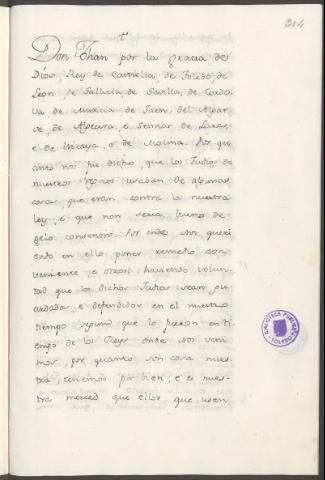 204
t
Don Jhan por la gracia de
Dios, Rey de Castiella, de Toledo, de
Leon, de Gallicia, de Sevilla, de Cordo
va de Murcia de Jaen, del Algar
ve, de Algecira, e Sennor de Lara,
e de Vizcaya, e de Molina. Por qu
anto nos fue dicho, que los Judios de
nuestros Regnos usaban de algunas
cosas, que eran contra la nuestra
ley, e que non seria bueno de
gelo consentir. Por ende, Nos queri
endo en ello poner remedio con
veniente, e otrosi haviendo volun
tad que los dichos Judios sean gu
ardados, e defendidos en el nuestro
tiempo segund que lo fueron en ti
empo de los Reyes onde Nos veni
mos, por quanto son cosa nues-
tra, tenemos por bien, e es nues-
tra merced que ellos que usen
BIBLIOTECA PUBLICA
TOLEDO